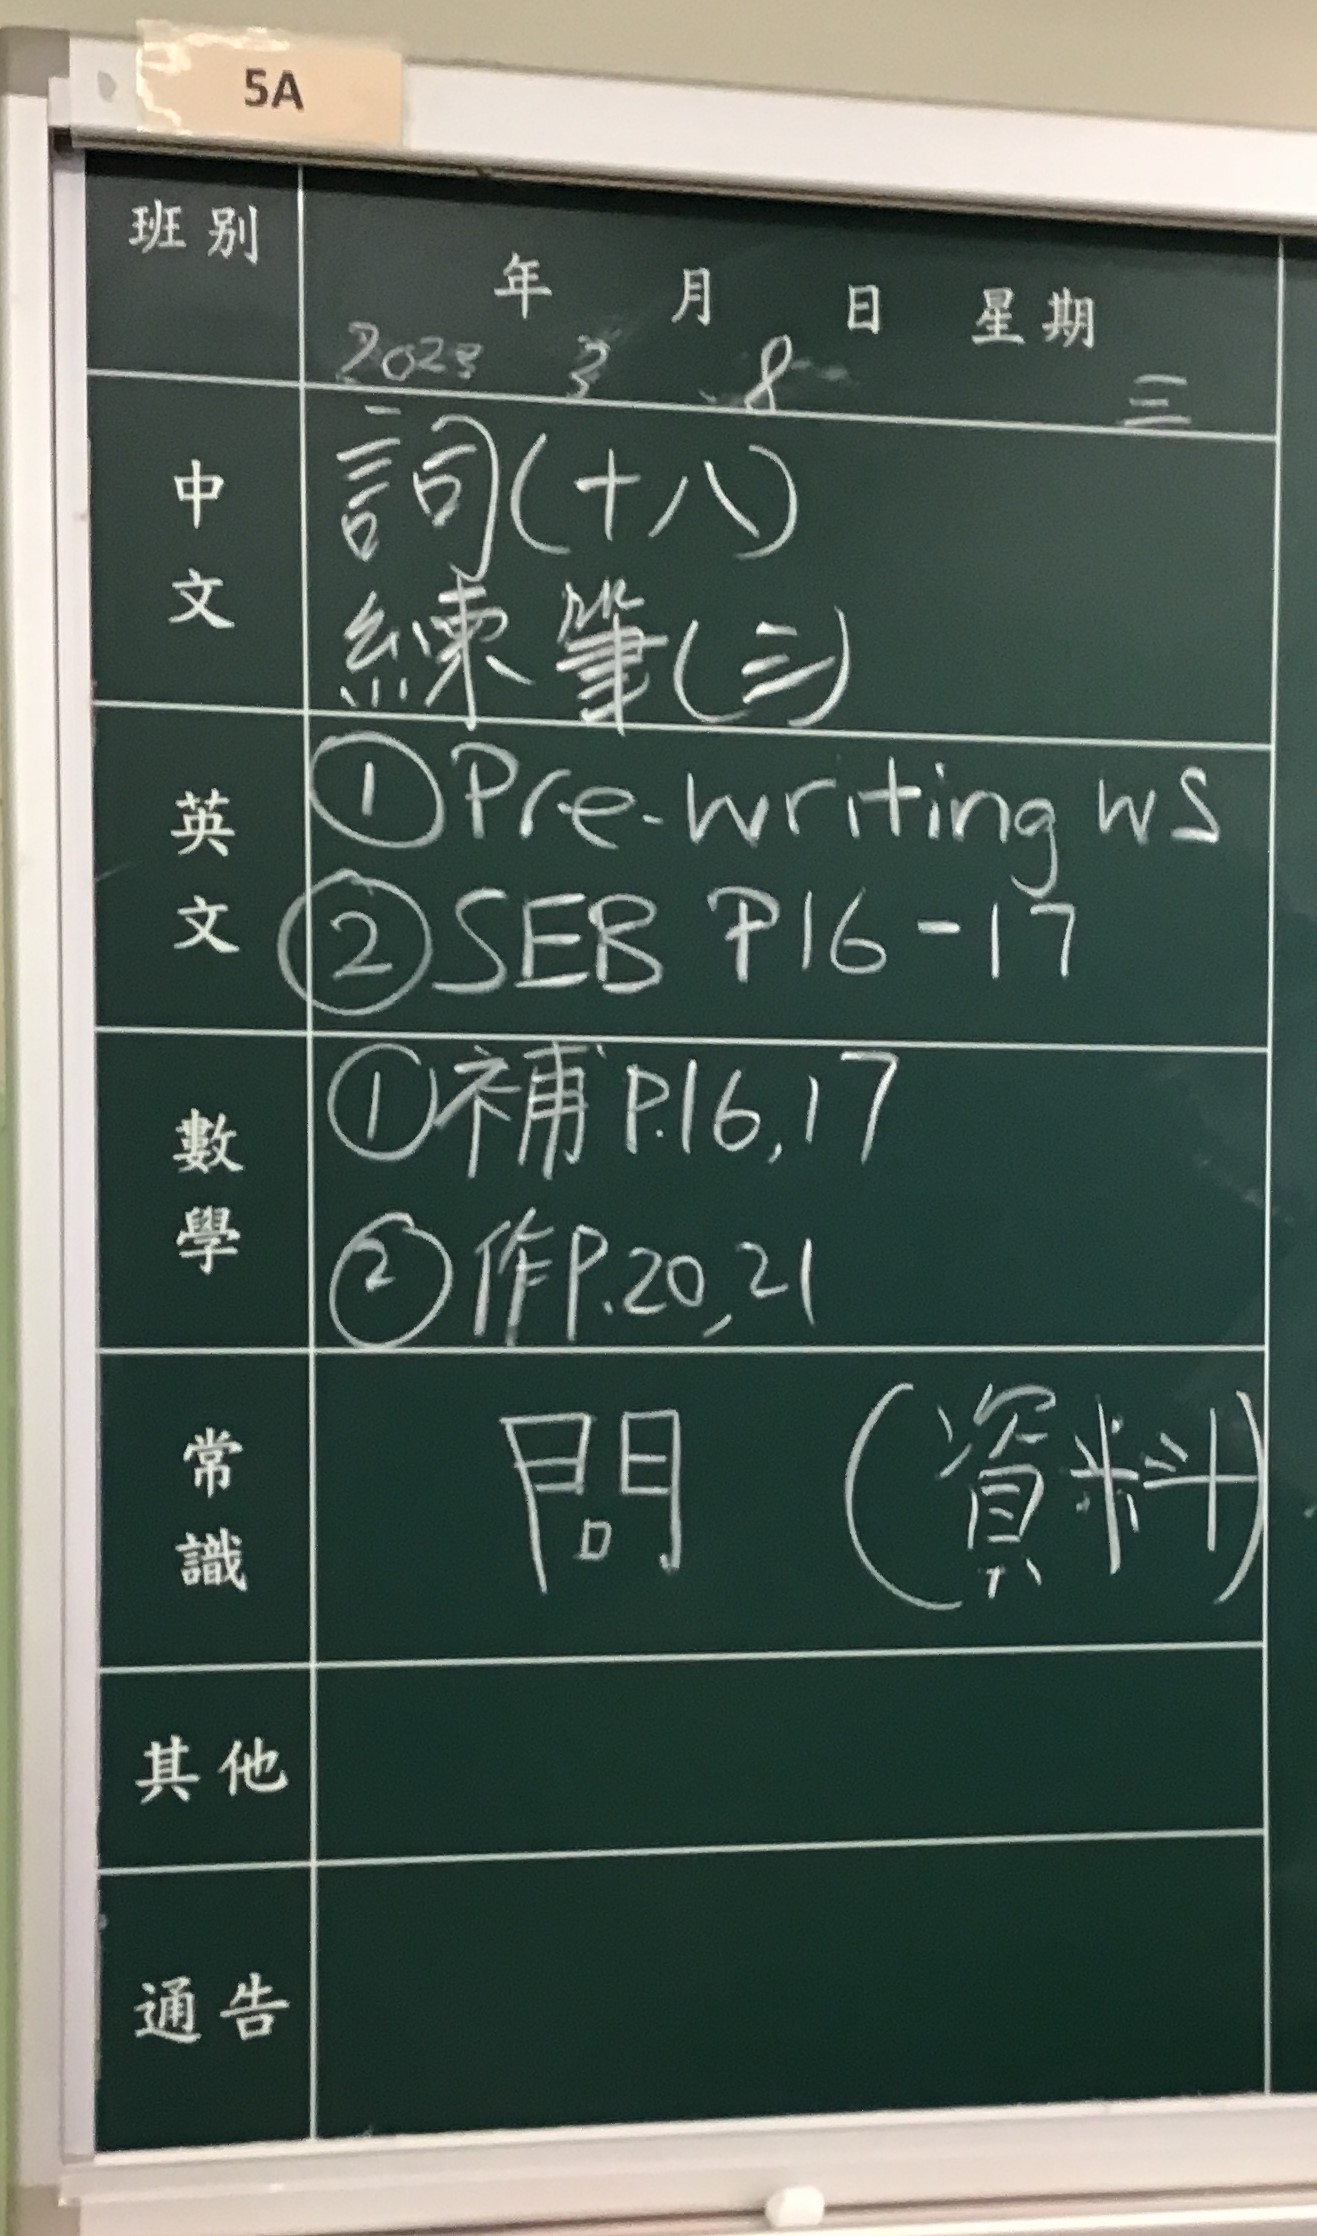 5A
班別
年 月 日 星期
2023 3 8 三
中文
詞(十八)
練筆(三)
英文
①Pre-writing WS
②SEB P16-17
數學
①補P.16,17
②作P.20,21
常識
問 (資料)
其他
通告